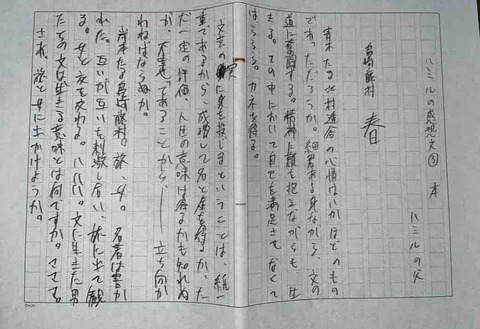 ハミルの感想文③ 本
ハミルの父
島崎藤村 春
青木たる北村透谷の心情はいかほどのもの
であっただろうか。細君ある身ながら、文の
道に奮闘する。精神に難を抱えながらも、生
きる。その中において自己を満足させなくて
はならぬ。カネを得る。
文芸の
に身を投じるということは、紙一
重であるから、成功して名と金を得るか、た
だ一定の評価、人生の意味は得るかも知れぬ
が、不幸せであることから、――立ち向か
わねばならぬか。
岸本たる島崎藤村。旅、女。
著は書か
れた。互いが互いを刺激し合い、旅に出て観
る。女と文を交わる。ハハハ。文に生きた男
たちの文は生きる意味とは何ですか。ママです。
さあ、旅と女に出かけようか。